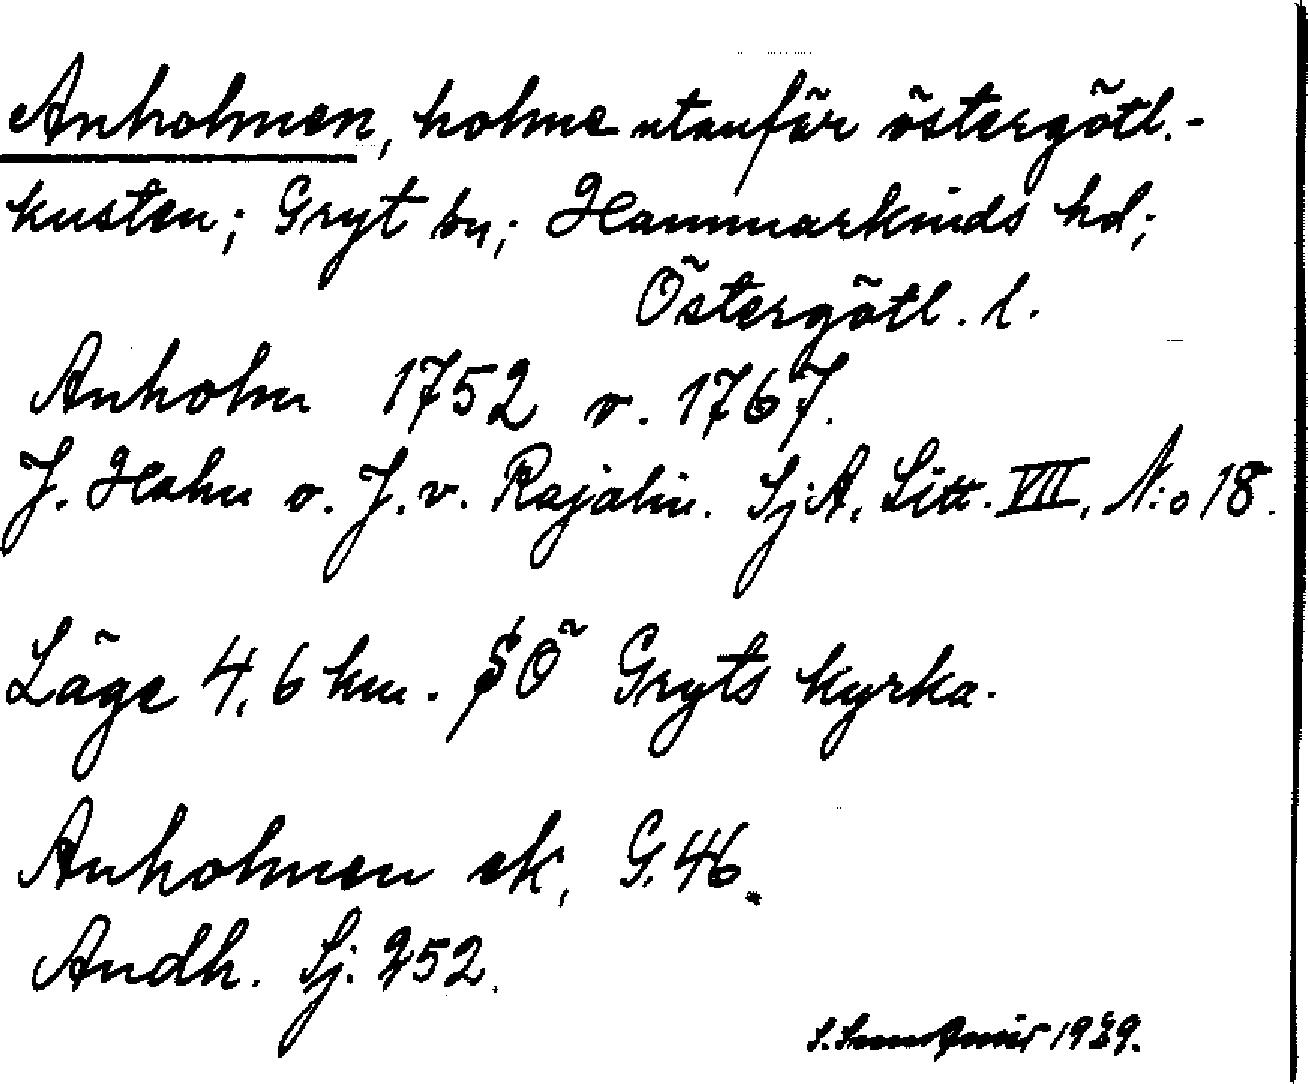 Anholmen, holme utanför östergötl.-
kusten; Gryt sn; Hammarkinds hd;
Östergötl. l.
Anholm 1752 o. 1767.
J. Hahn o. J. v. Rajalin. SjA, Litt. VIII, N:o 18.
Läge 4,6 km. SÖ Gryts kyrka.
Anholmen ek, G. 46.
Andh. Sj. 252.
S. 1929.